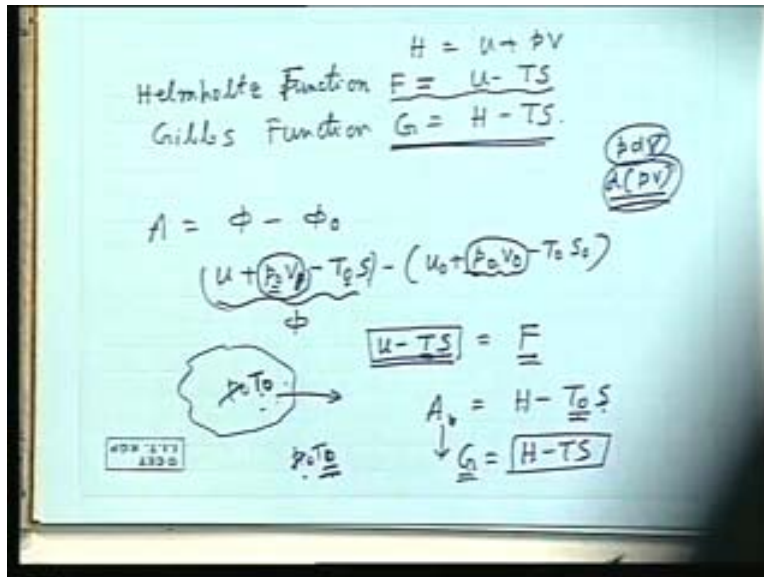 H = u + pV
Helmholtz Function F = u - TS
Gibbs Function G = H - TS.
pdV
d(pV)
A = ϕ - ϕ₀
(u + p₀V - T₀S) - (u₀ + p₀V₀ - T₀S₀)
ϕ
u - TS = F
p₀T₀
A = H - T₀S
p₀T₀
G = H - TS
I.I.T. KGP